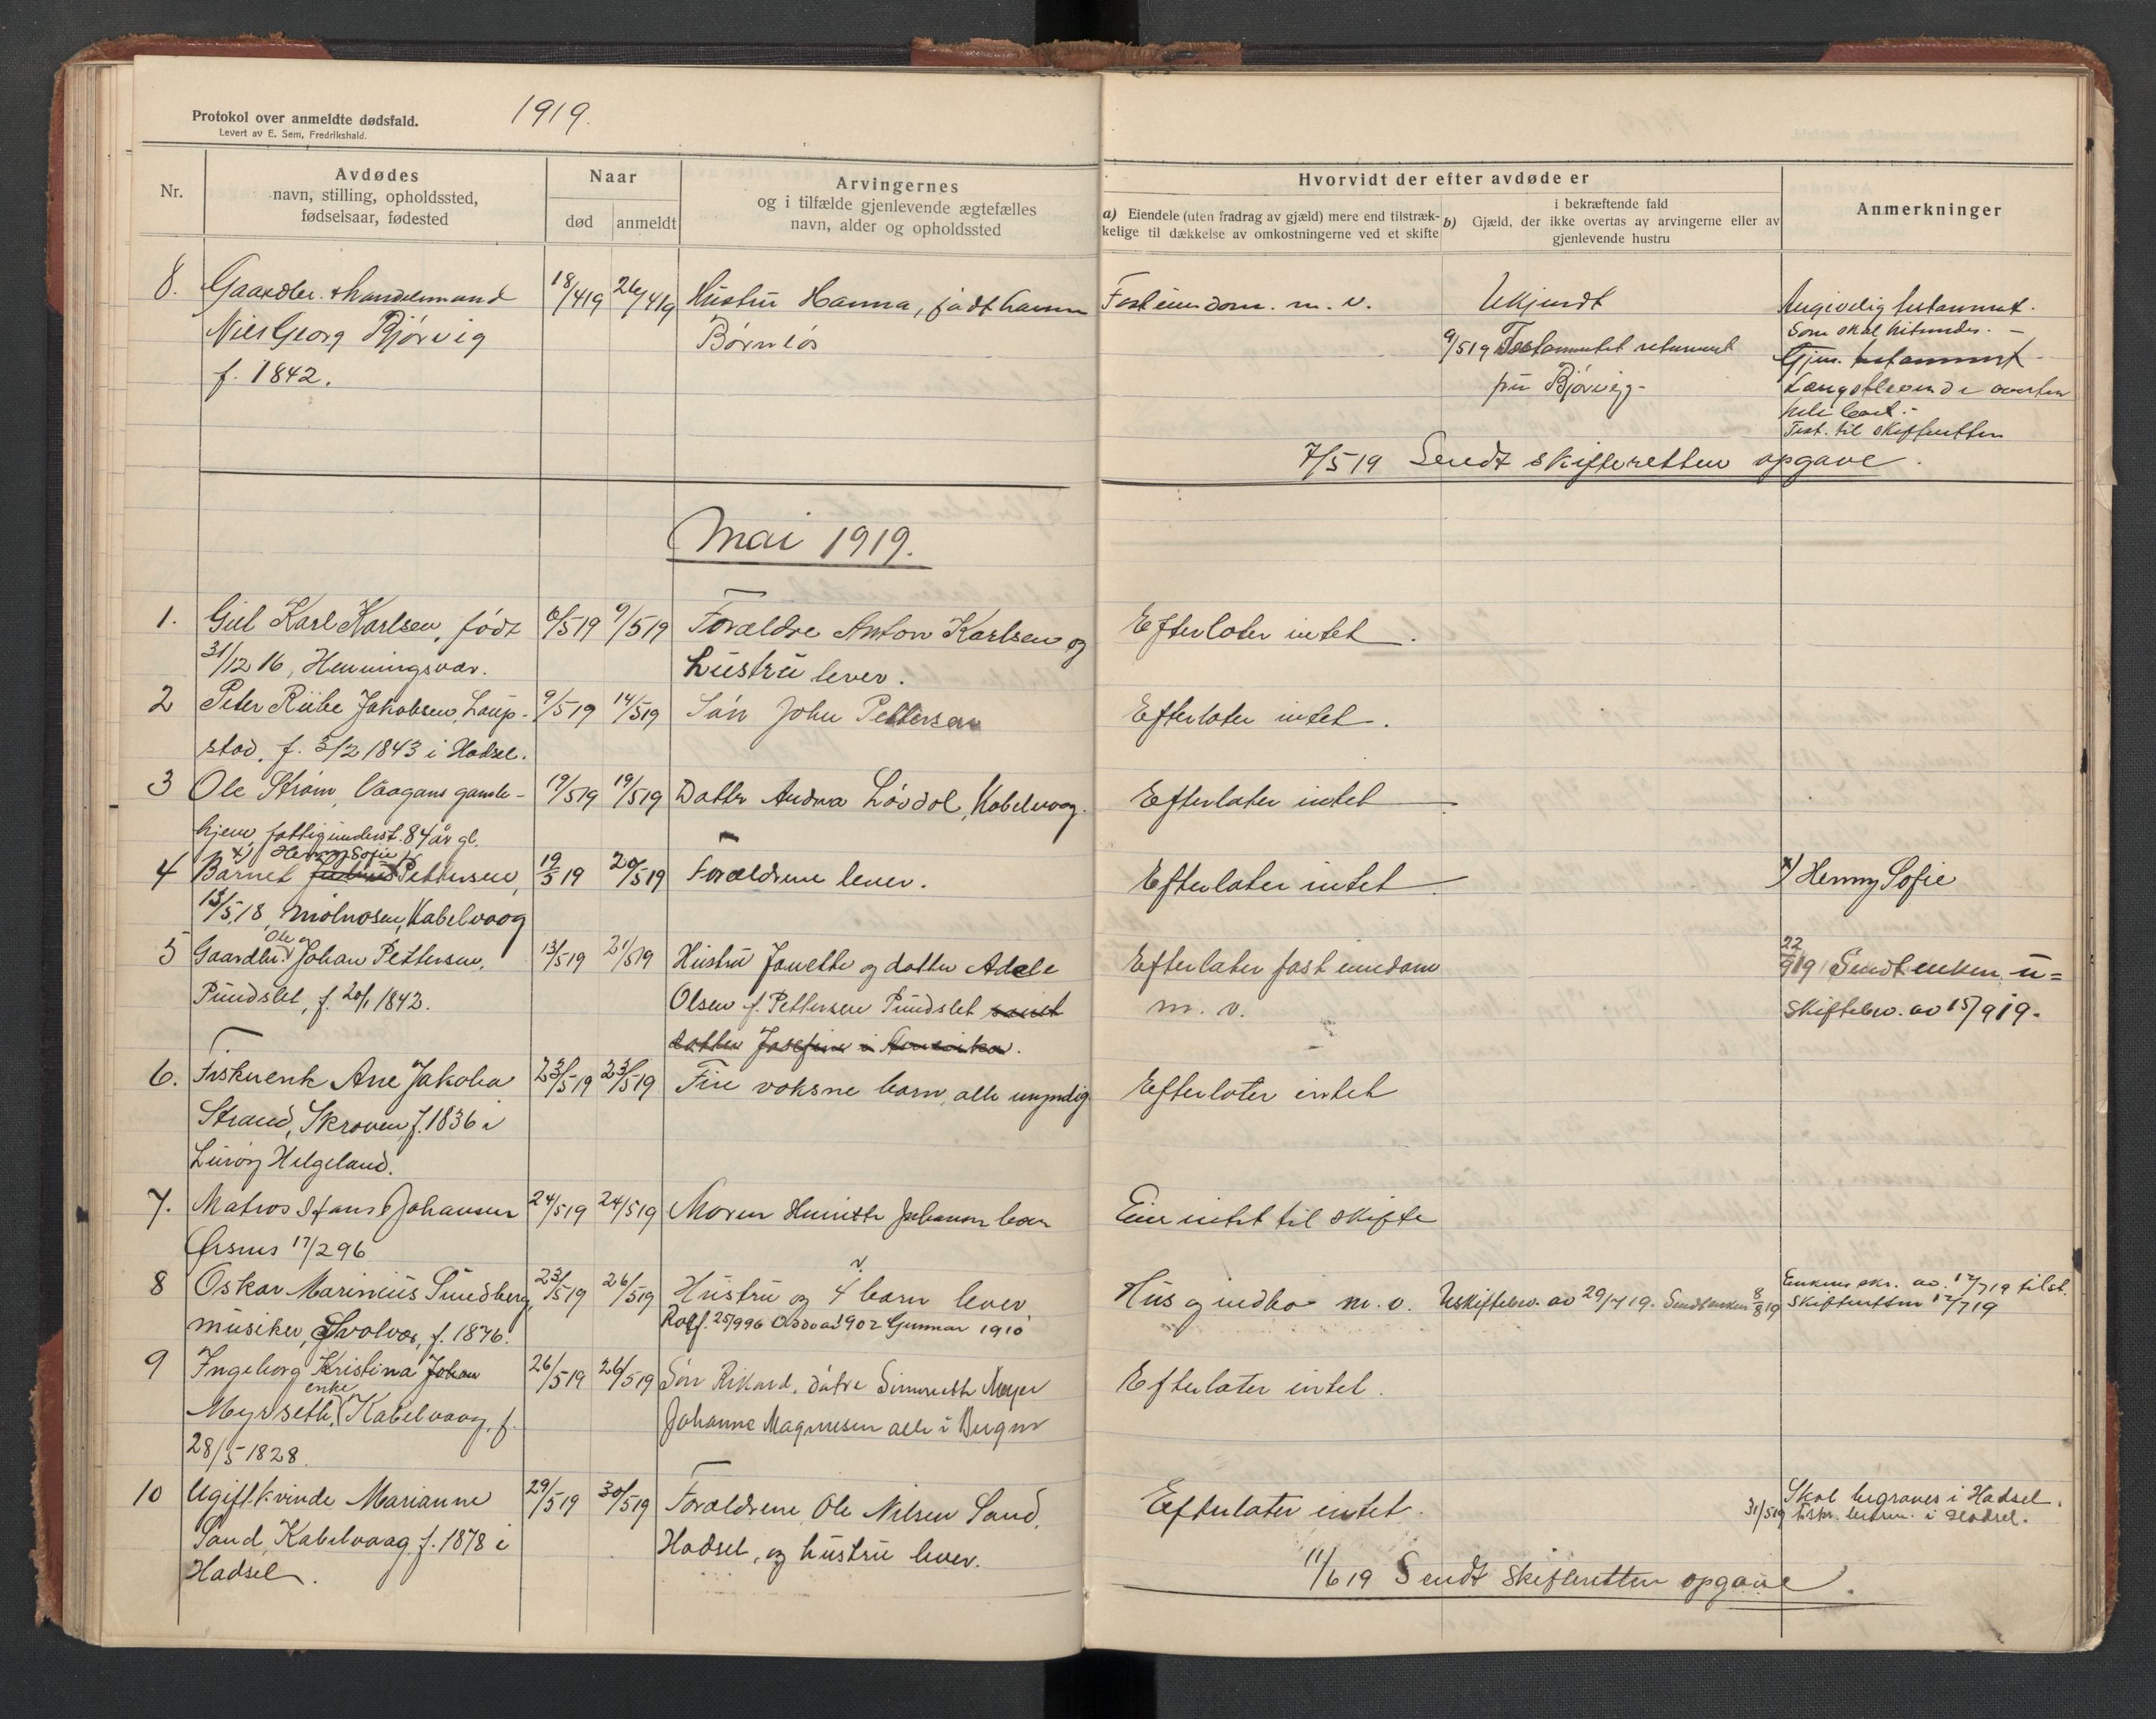 Protokol over anmeldte dødsfald.
Levert av E. Sem, Fredrikshald.
1919.
Nr.
Avdødes
navn, stilling, opholdssted,
fødselsaar, fødested
Naar
død
anmeldt
Arvingernes
og i tilfælde gjenlevende ægtefælles
navn, alder og opholdssted
Hvorvidt der efter avdøde er
a) Eiendele (uten fradrag av gjæld) mere end tilstræk-
kelige til dækkelse av omkostningerne ved et skifte
i bekræftende fald
b) Gjæld, der ikke overtas av arvingerne eller av
gjenlevende hustru
Anmerkninger
8. Gaardbr. & handelsmand 18/4 19 26/4 19 Hustru Hanna, født Fast eiendom. m. v. Ukjendt Angivelig testament.
Niels Georg Bjørvig Barnløs 9/5 19 Testamentet returnert som skal hitsendes. –
f. 1842. fru Bjørvig - Gjen. testament
Længstlevende
hele boet. -
Test. til skifteretten
7/5 19 Sendt skifteretten opgave.
Mai 1919.
1. Giil Karl Karlsen, født 6/5 19 9/5 19 Forældre Anton Karlsen og Efterlater intet.
31/12 16, Henningsvær. hustru lever.
2 Peter Riibe Jakobsen, Laup- 9/5 19 14/5 19 Søn John Pettersen Efterlater intet.
stad, f. 3/2 1843 i Hadsel.
3 Ole Strøm, Vaagans gamle- 19/5 19 19/5 19 Datter Andrea Løvdal, Kabelvaag. Efterlater intet
hjem, fattigunderst. 84 år gl.
x) Henny Sofie
4 Barnet Pettersen, 19/5 19 20/5 19 Forældrene lever. Efterlater intet x) Henny Sofie
13/5 18, Molnosen, Kabelvaag
Ole og
5 Gaardbr. Johan Pettersen, 13/5 19 21/5 19 Hustru Janette og datter Adele Efterlater fast eiendom 22/9 19 Sendt enken u=
Pundslet, f. 20/1 1842. Olsen f. Pettersen Pundslet samt m. v. skiftebev. av 15/9 19.
datter Josefine i Amerika.
6. Fiskerenk Ane Jakoba 23/5 19 23/5 19 Fire voksne barn, alle myndig Efterlater intet
Strand, Skroven f. 1836 i
Lurøy Helgeland.
7. Matros Hans Johansen 24/5 19 24/5 19 Moren Henriette Johansen lever Eier intet til skifte
Ørsnes 17/2 96
8 Oskar Marinius Sundberg, 23/5 19 26/5 19 Hustru og 4 barn lever Hus og indbo m. v. Uskiftebev. av 29/7 19. Sendt enken 8/8 19 Enkens skr. av. 12/7 19 tilst.
musiker, Svolvær, f. 1876. Rolf. 25/9 96 Oddvar 1902 Gunnar 1910 skifteretten 12/7 19
9 Ingeborg Kristina Johan 26/5 19 26/5 19 Søn Rikard, døtre Meyer Efterlater intet.
enke
Myrseth, Kabelvaag, f. Johanne Magnusen alle i Bergen
28/5 1828.
10 Ugift kvinde Marianne 29/5 19 30/5 19 Forældrene Ole Nilsen Sand, Efterlater intet. Skal begraves i Hadsel.
Sand, Kabelvaag, f. 1878 i Hadsel, og hustru lever. 31/5 19 i Hadsel.
Hadsel.
11/6 19 Sendt skifteretten opgave.